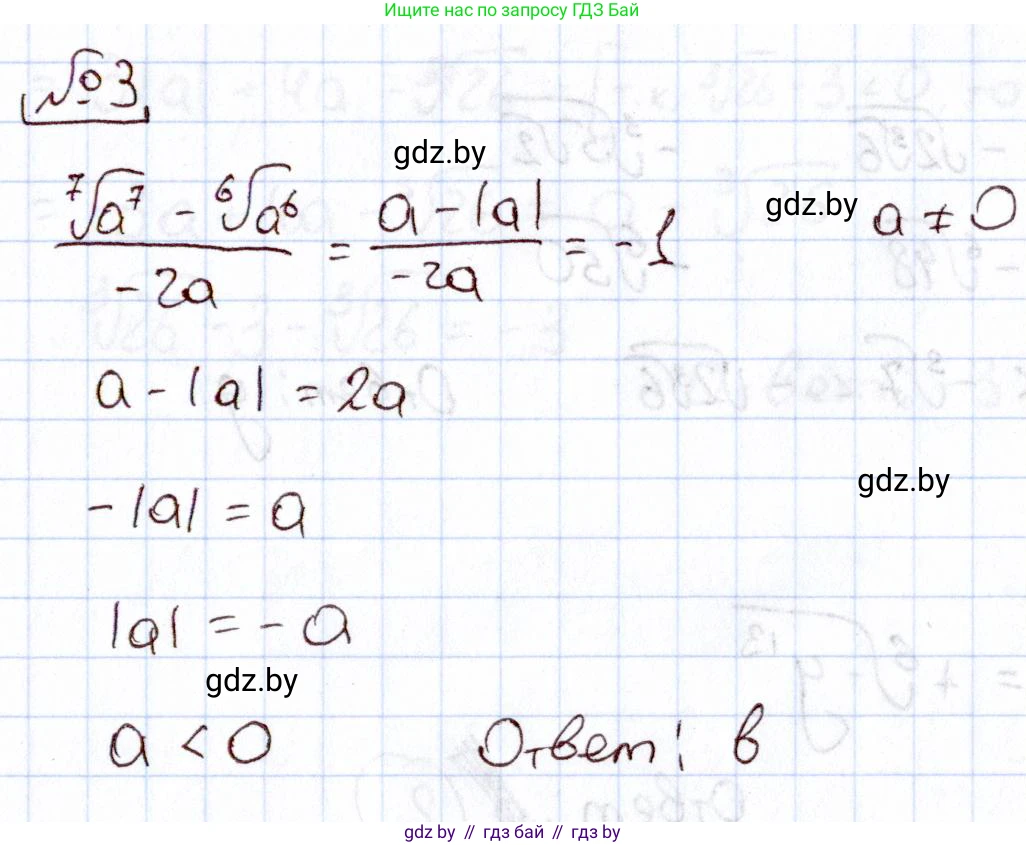 Ищите нас по запросу ГДЗ Бай
№3
gdz.by
(⁷√a⁷ - ⁶√a⁶) / (-2a) = (a - |a|) / (-2a) = -1
gdz.by
a ≠ 0
a - |a| = 2a
gdz.by
-|a| = a
|a| = -a
gdz.by
a < 0
Ответ: в
gdz.by // гдз бай // гдз by